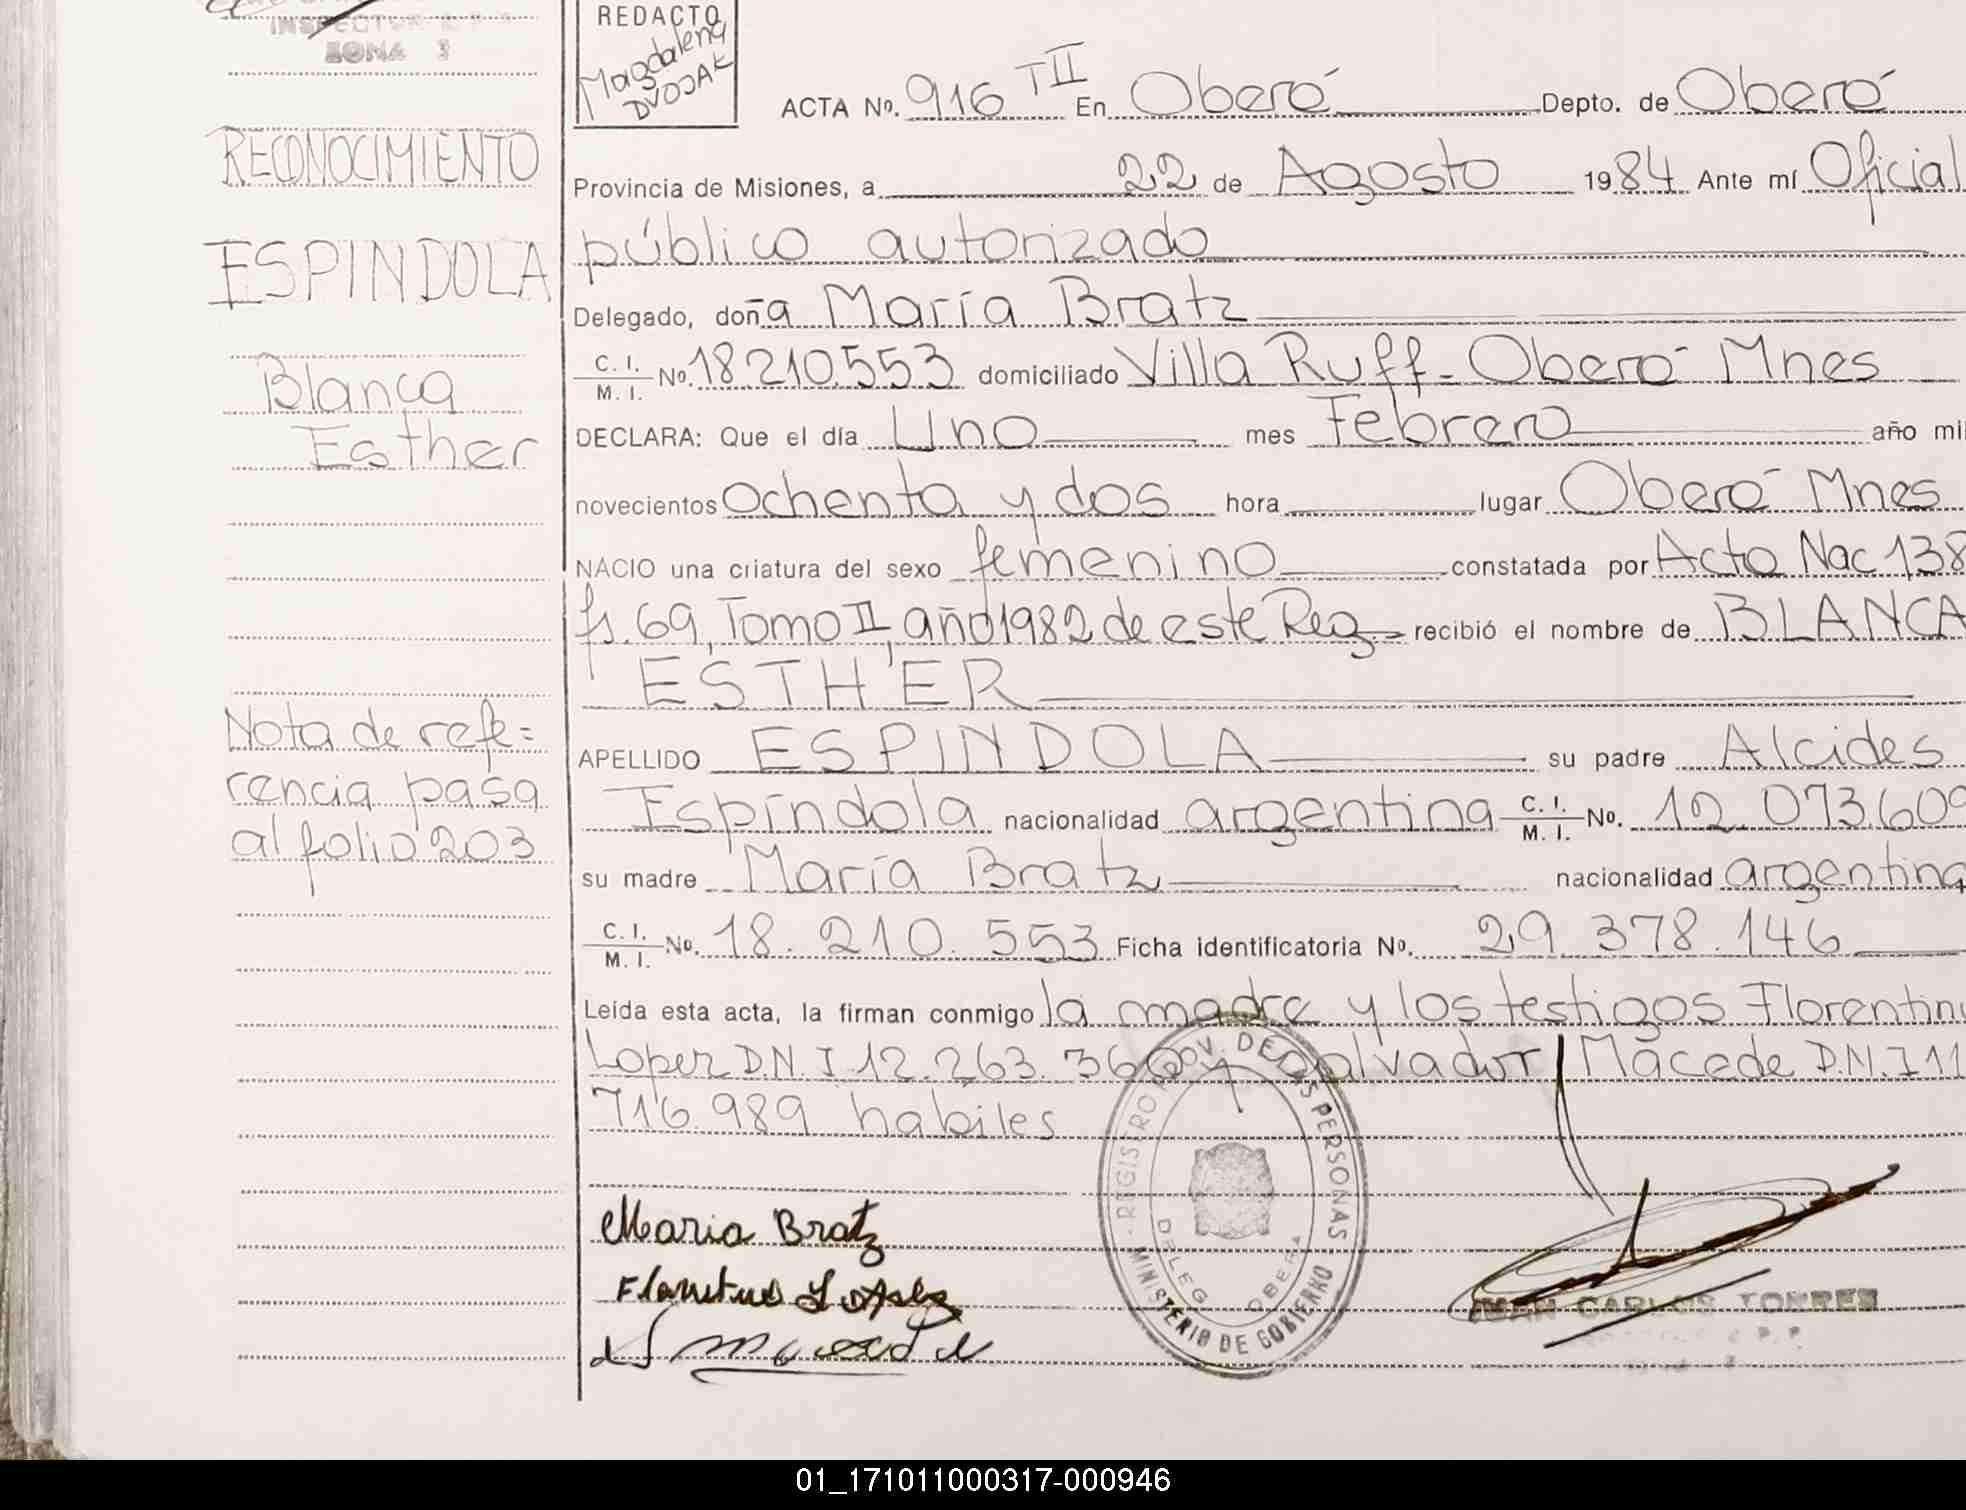 INSPECTOR
ZONA 3
REDACTO
Magdalena
DVOJAK
ACTA Nº. 916 TII En Oberá Depto. de Oberá
RECONOCIMIENTO
Provincia de Misiones, a 22 de Agosto 1984 Ante mí Oficial
público autorizado
ESPINDOLA
Delegado, doña María Bratz
C. I. / M. I. Nº. 18.210.553 domiciliado Villa Ruff - Oberá Mnes
Blanca
Esther
DECLARA: Que el día Uno mes Febrero año mil
novecientos Ochenta y dos hora lugar Oberá Mnes
NACIO una criatura del sexo femenino constatada por Acta Nac 138
fs. 69, Tomo II, año 1982 de este Reg. recibió el nombre de BLANCA
ESTHER
Nota de refe=
rencia pasa
al folio 203
APELLIDO ESPINDOLA su padre Alcides
Espíndola nacionalidad argentina C. I. / M. I. Nº. 12.073.609
su madre María Bratz nacionalidad argentina
C. I. / M. I. Nº. 18.210.553 Ficha identificatoria Nº. 29.378.146
Leída esta acta, la firman conmigo la madre y los testigos Florentino
Lopez D.N.I 12.263.360 y Salvador Macede D.N.I 11
716.989 habiles
REGISTRO PROV. DE LAS PERSONAS
DELEG. OBERA
MINISTERIO DE GOBIERNO
Maria Bratz
JUAN CARLOS TORRES
01_171011000317-000946